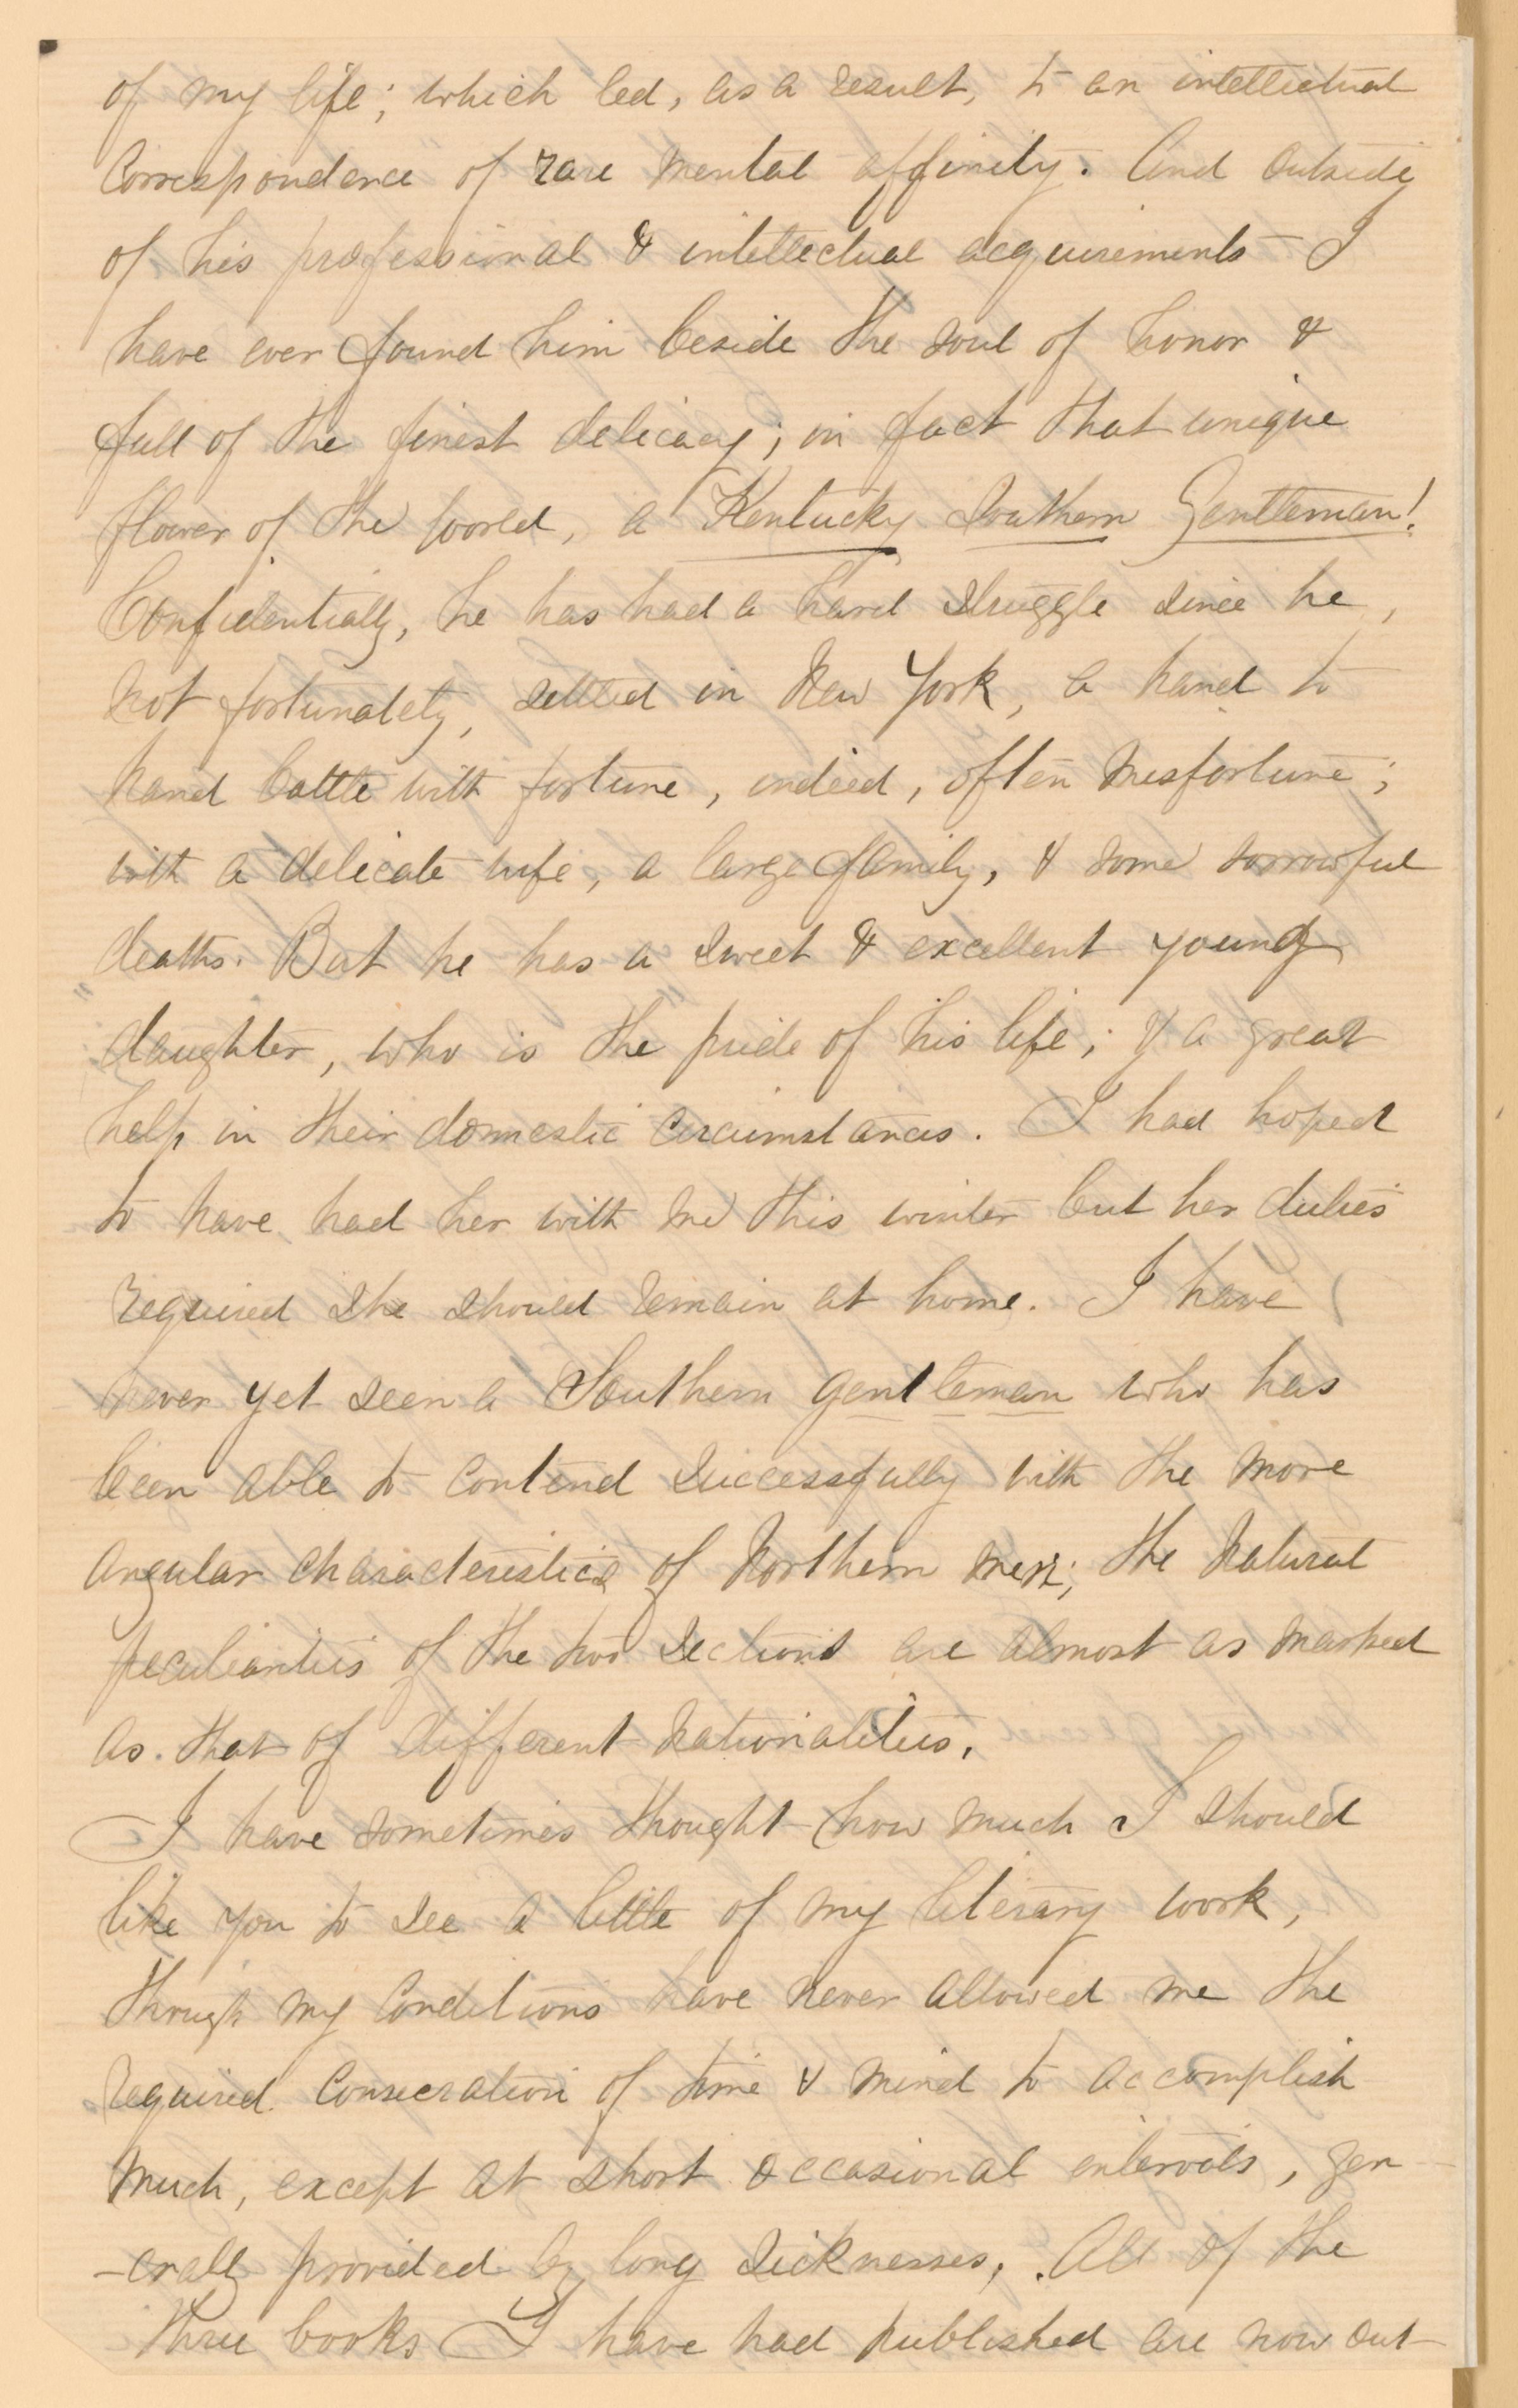 of my life; which led, as a result, to an intellectual
correspondence of rare mental affinity. And outside
of his professional & intellectual acquirements I
have ever found him beside the soul of honor &
full of the finest delicacy; in fact that unique
flower of the world, a Kentucky Southern Gentleman!
Confidentially, he has had a hard struggle since he,
not fortunately, settled in New York, a hand to
hand battle with fortune, indeed, often misfortune;
with a delicate wife, a large family, & some sorrowful
deaths. But he has a sweet & excellent young
daughter, who is the pride of his life; & a great
help in their domestic circumstances. I had hoped
to have had her with me this winter but her duties
required she should remain at home. I have
never yet seen a Southern gentleman who has
been able to contend successfully with the more
angular characteristics of Northern men; the natural
peculiarities of the two sections are almost as marked
as that of different nationalities.
I have sometimes thought how much I should
like you to see a little of my literary work,
though my conditions have never allowed me the
required consecration of time & mind to accomplish
much, except at short occasional intervals, gen-
-erally provided by long sicknesses. All of the
three books I have had published are now out-